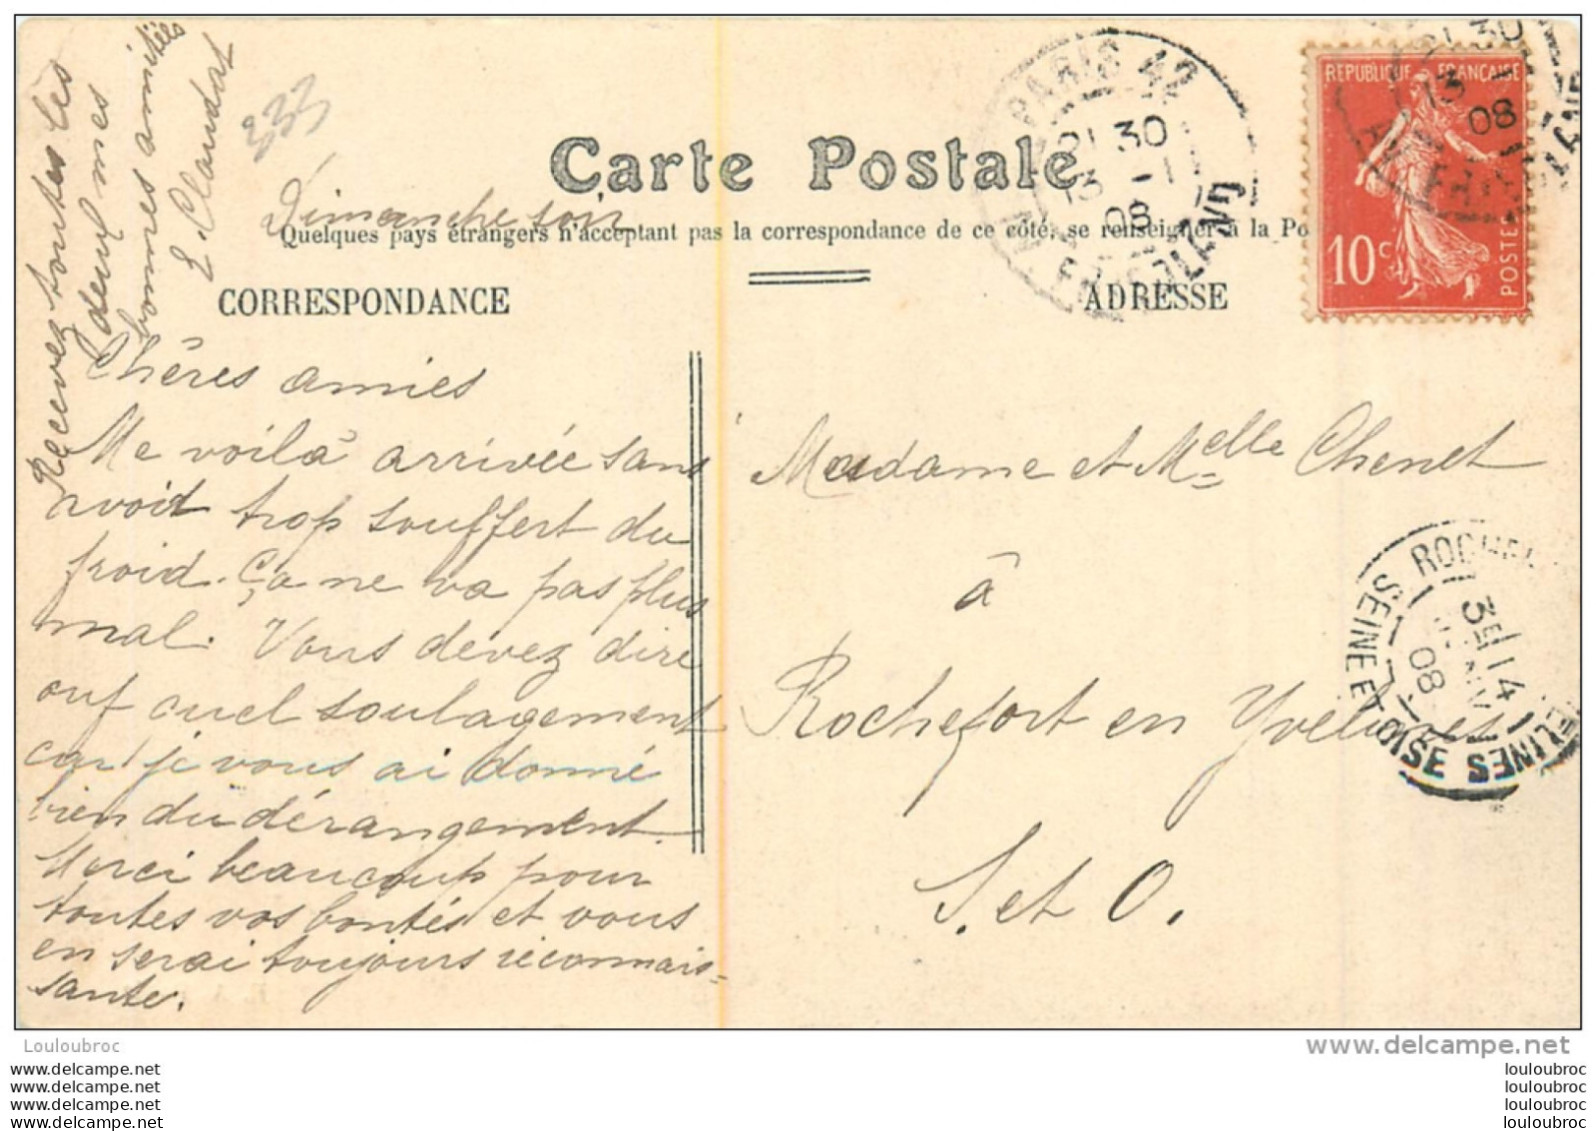 333
Carte Postale
Dimanche soir
Quelques pays étrangers n'acceptant pas la correspondance de ce côté, se renseigner à la Po
CORRESPONDANCE
Chères amies
Me voilà arrivée sans
avoir trop souffert du
froid. Ça ne va pas plus
mal. Vous devez dire
ouf quel soulagement
car je vous ai donné
bien du dérangement.
Merci beaucoup pour
toutes vos bontés et vous
en serai toujours reconnais=
sante.
Recevez toutes les
deux mes
bonnes amitiés
E. Claudot
ADRESSE
Madame et Melle Chenet
à
Rochefort en Yvelines
S. et O.
REPUBLIQUE FRANÇAISE
10c
POSTES
PARIS 42
21 30
13 - 1
08
13 -
08
SEINE ET OISE
3E
14
08
Louloubroc
www.delcampe.net
www.delcampe.net
www.delcampe.net
www.delcampe.net
www.delcampe.net
louloubroc
louloubroc
louloubroc
louloubroc